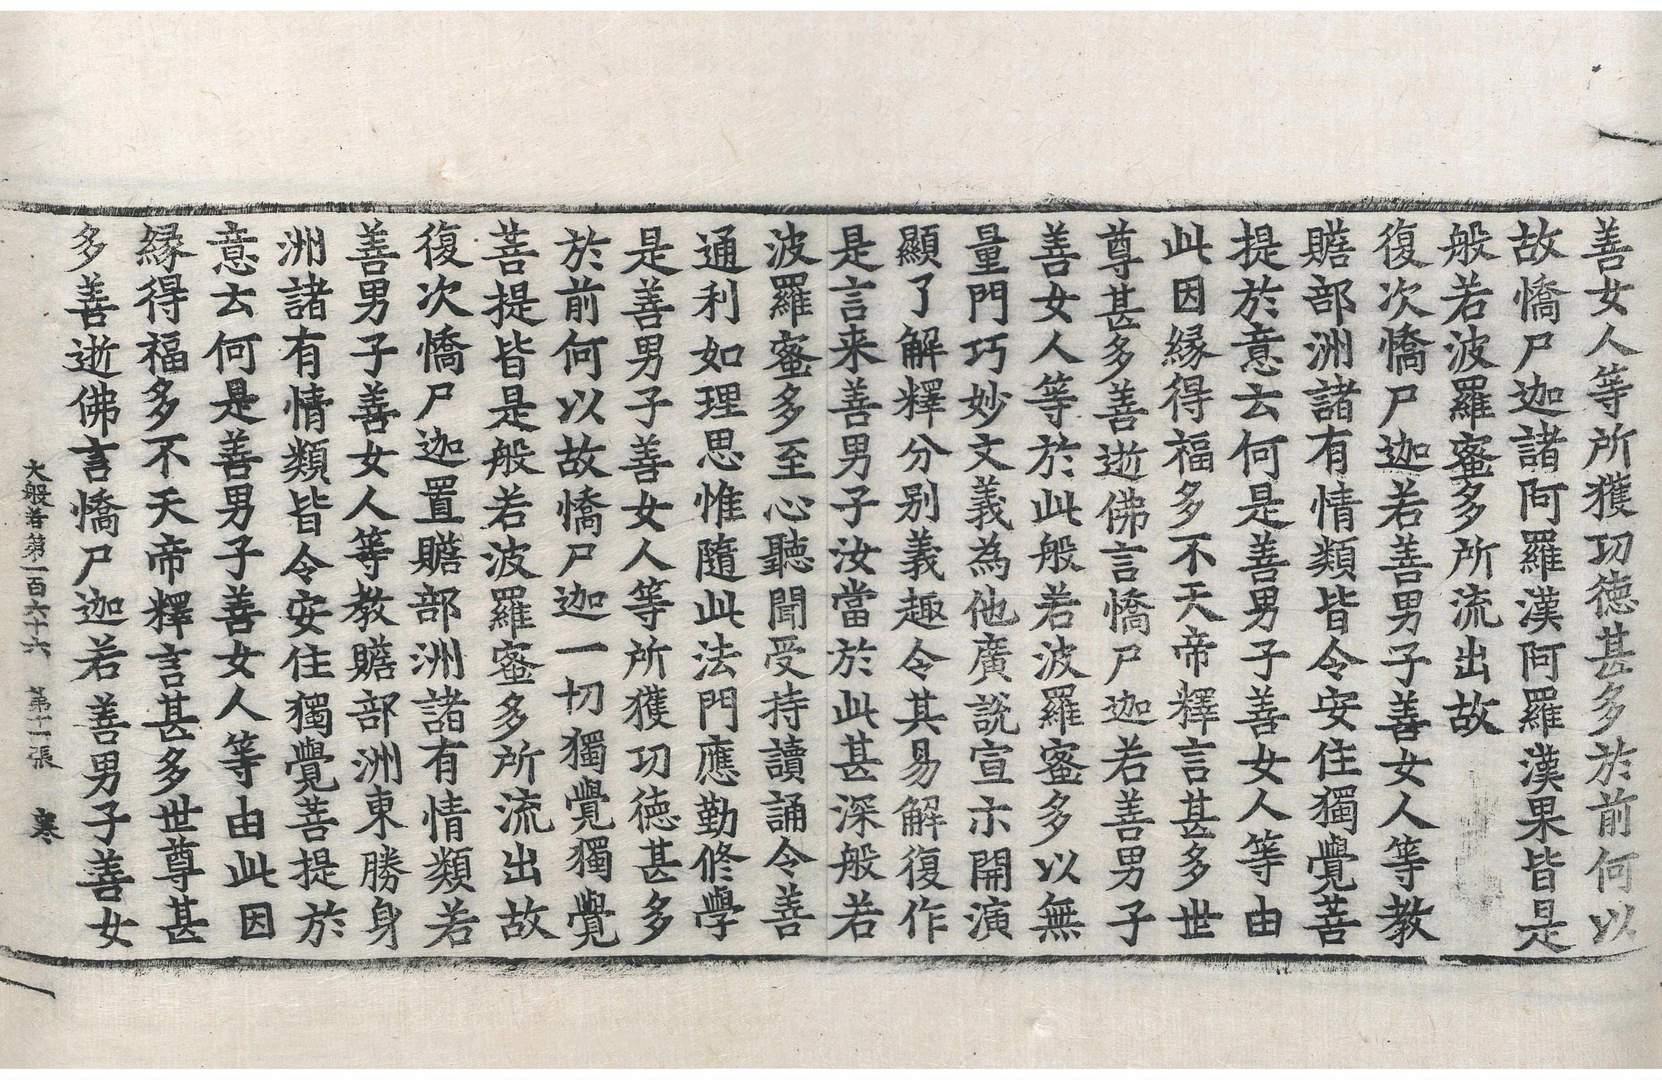 善女人等所獲功德甚多於前何以
故憍尸迦諸阿羅漢阿羅漢果皆是
般若波羅蜜多所流出故
復次憍尸迦若善男子善女人等教
贍部洲諸有情類皆令安住獨覺菩
提於意云何是善男子善女人等由
此因緣得福多不天帝釋言甚多世
尊甚多善逝佛言憍尸迦若善男子
善女人等於此般若波羅蜜多以無
量門巧妙文義為他廣說宣示開演
顯了解釋分別義趣令其易解復作
是言来善男子汝當於此甚深般若
波羅蜜多至心聽聞受持讀誦令善
通利如理思惟隨此法門應勤修學
是善男子善女人等所獲功德甚多
於前何以故憍尸迦一切獨覺獨覺
菩提皆是般若波羅蜜多所流出故
復次憍尸迦置贍部洲諸有情類若
善男子善女人等教贍部洲東勝身
洲諸有情類皆令安住獨覺菩提於
意云何是善男子善女人等由此因
緣得福多不天帝釋言甚多世尊甚
多善逝佛言憍尸迦若善男子善女
大般若第一百六十六 第十一張 寒